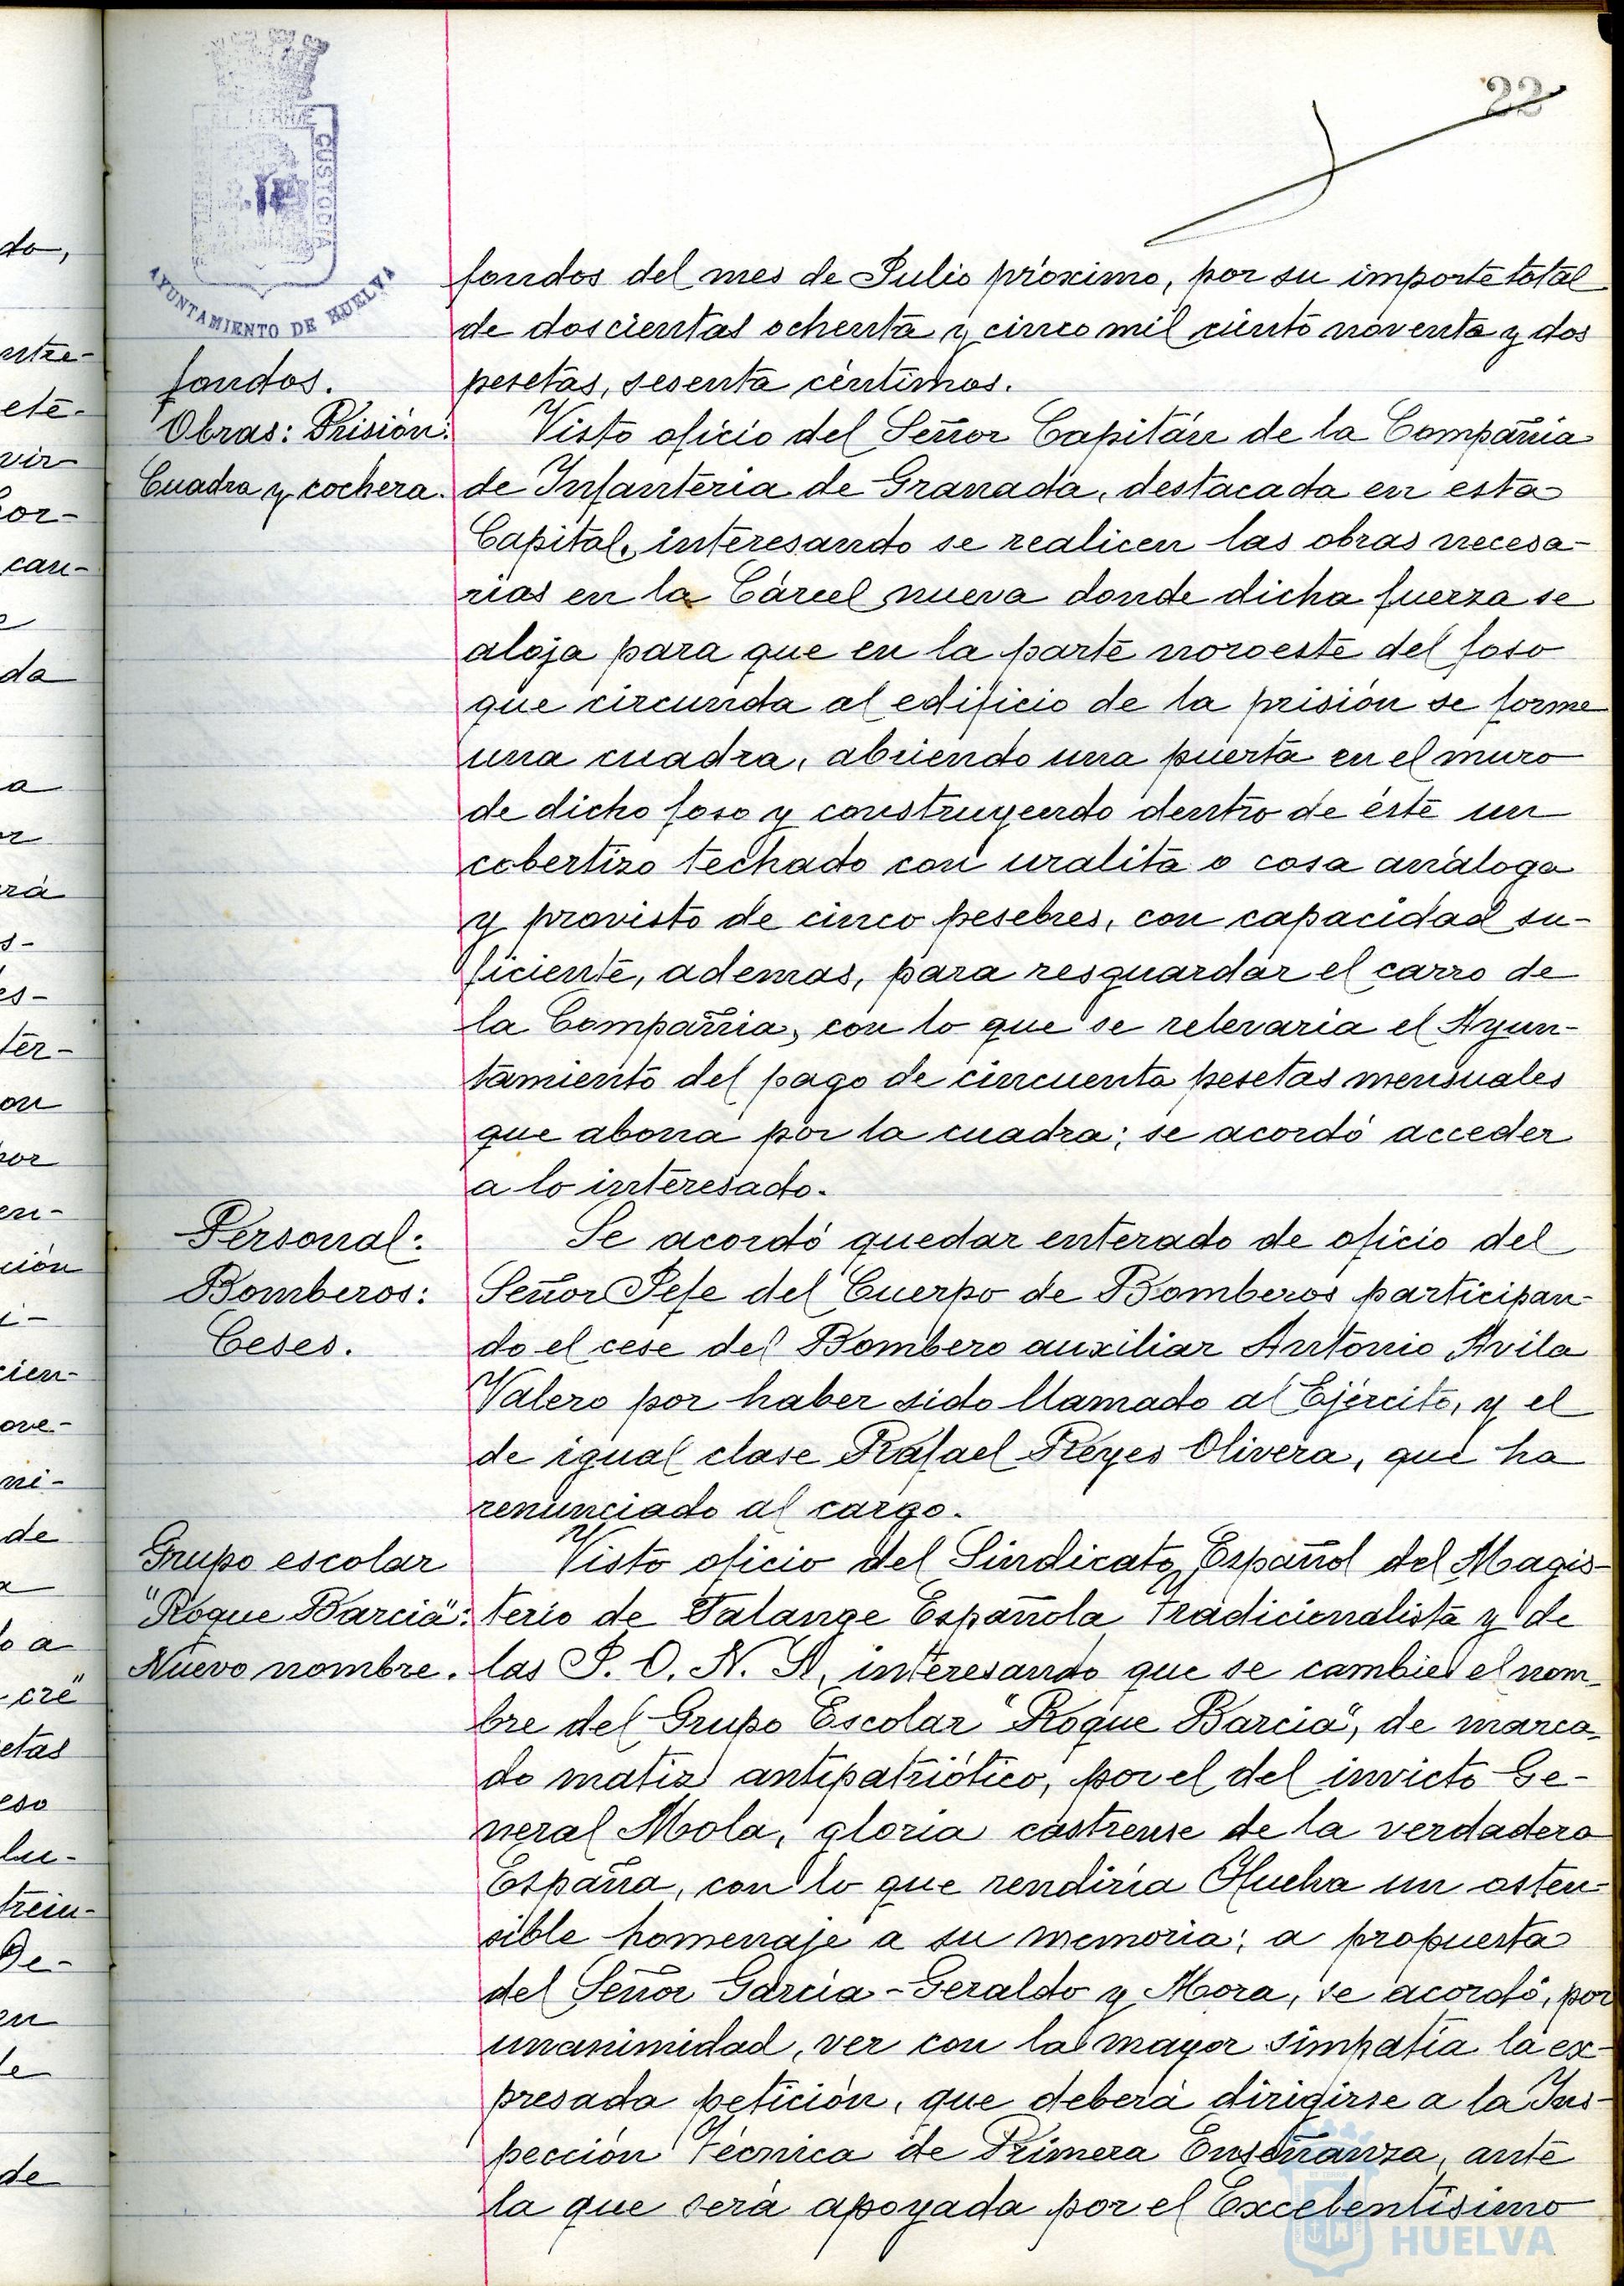 22
AYUNTAMIENTO DE HUELVA
CUSTODIA
fondos del mes de Julio próximo, por su importe total
de doscientas ochenta y cinco mil ciento noventa y dos
fondos.
pesetas, sesenta céntimos.
Obras: Prisión:
Visto oficio del Señor Capitán de la Compañia
Cuadra y cochera.
de Infantería de Granada, destacada en esta
Capital, interesando se realicen las obras necesa-
rias en la Cárcel nueva donde dicha fuerza se
aloja para que en la parte noroeste del foso
que circunda al edificio de la prisión se forme
una cuadra, abriendo una puerta en el muro
de dicho foso y construyendo dentro de éste un
cobertizo techado con uralita o cosa análoga
y provisto de cinco pesebres, con capacidad su-
ficiente, ademas, para resguardar el carro de
la Compañia, con lo que se relevaria el Ayun-
tamiento del pago de cincuenta pesetas mensuales
que abona por la cuadra; se acordó acceder
a lo interesado.
Personal:
Se acordó quedar enterado de oficio del
Bomberos:
Señor Jefe del Cuerpo de Bomberos participan-
Ceses.
do el cese del Bombero auxiliar Antonio Avila
Valero por haber sido llamado al Ejército, y el
de igual clase Rafael Reyes Olivera, que ha
renunciado al cargo.
Grupo escolar
Visto oficio del Sindicato Español del Magis-
"Roque Barcia":
terio de Falange Española Tradicionalista y de
Nuevo nombre.
las J. O. N. S, interesando que se cambie el nom-
bre del Grupo Escolar "Roque Barcia", de marca-
do matiz antipatriótico, por el del invicto Ge-
neral Mola, gloria castrense de la verdadera
España, con lo que rendiría Huelva un osten-
sible homenaje a su memoria; a propuesta
del Señor Garcia-Geraldo y Mora, se acordó, por
unanimidad, ver con la mayor simpatía la ex-
presada petición, que deberá dirigirse a la Ins-
pección Técnica de Primera Enseñanza, ante
la que será apoyada por el Excelentísimo
HUELVA